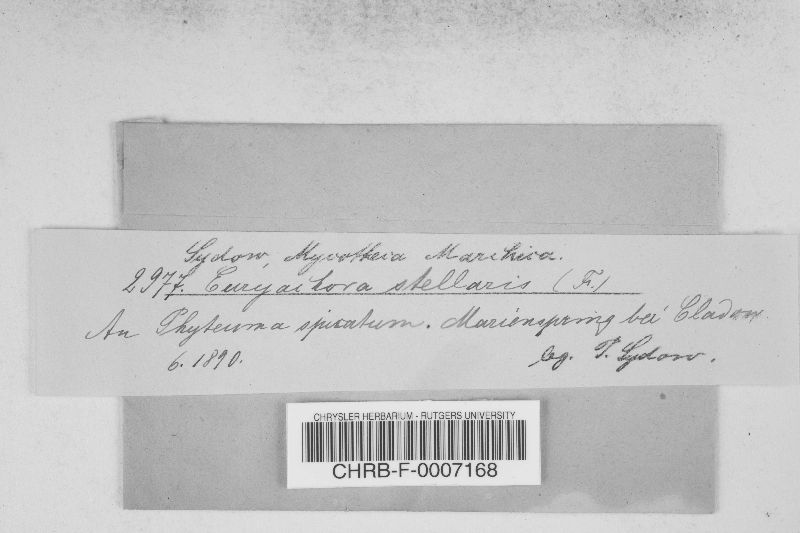 Sydow, Mycotheca Marchica.
2977. Euryachora stellaris (Fr.)
An Phyteuma spicatum. Marienspring bei Cladow.
6. 1890. leg. P. Sydow.
CHRYSLER HERBARIUM - RUTGERS UNIVERSITY
CHRB-F-0007168